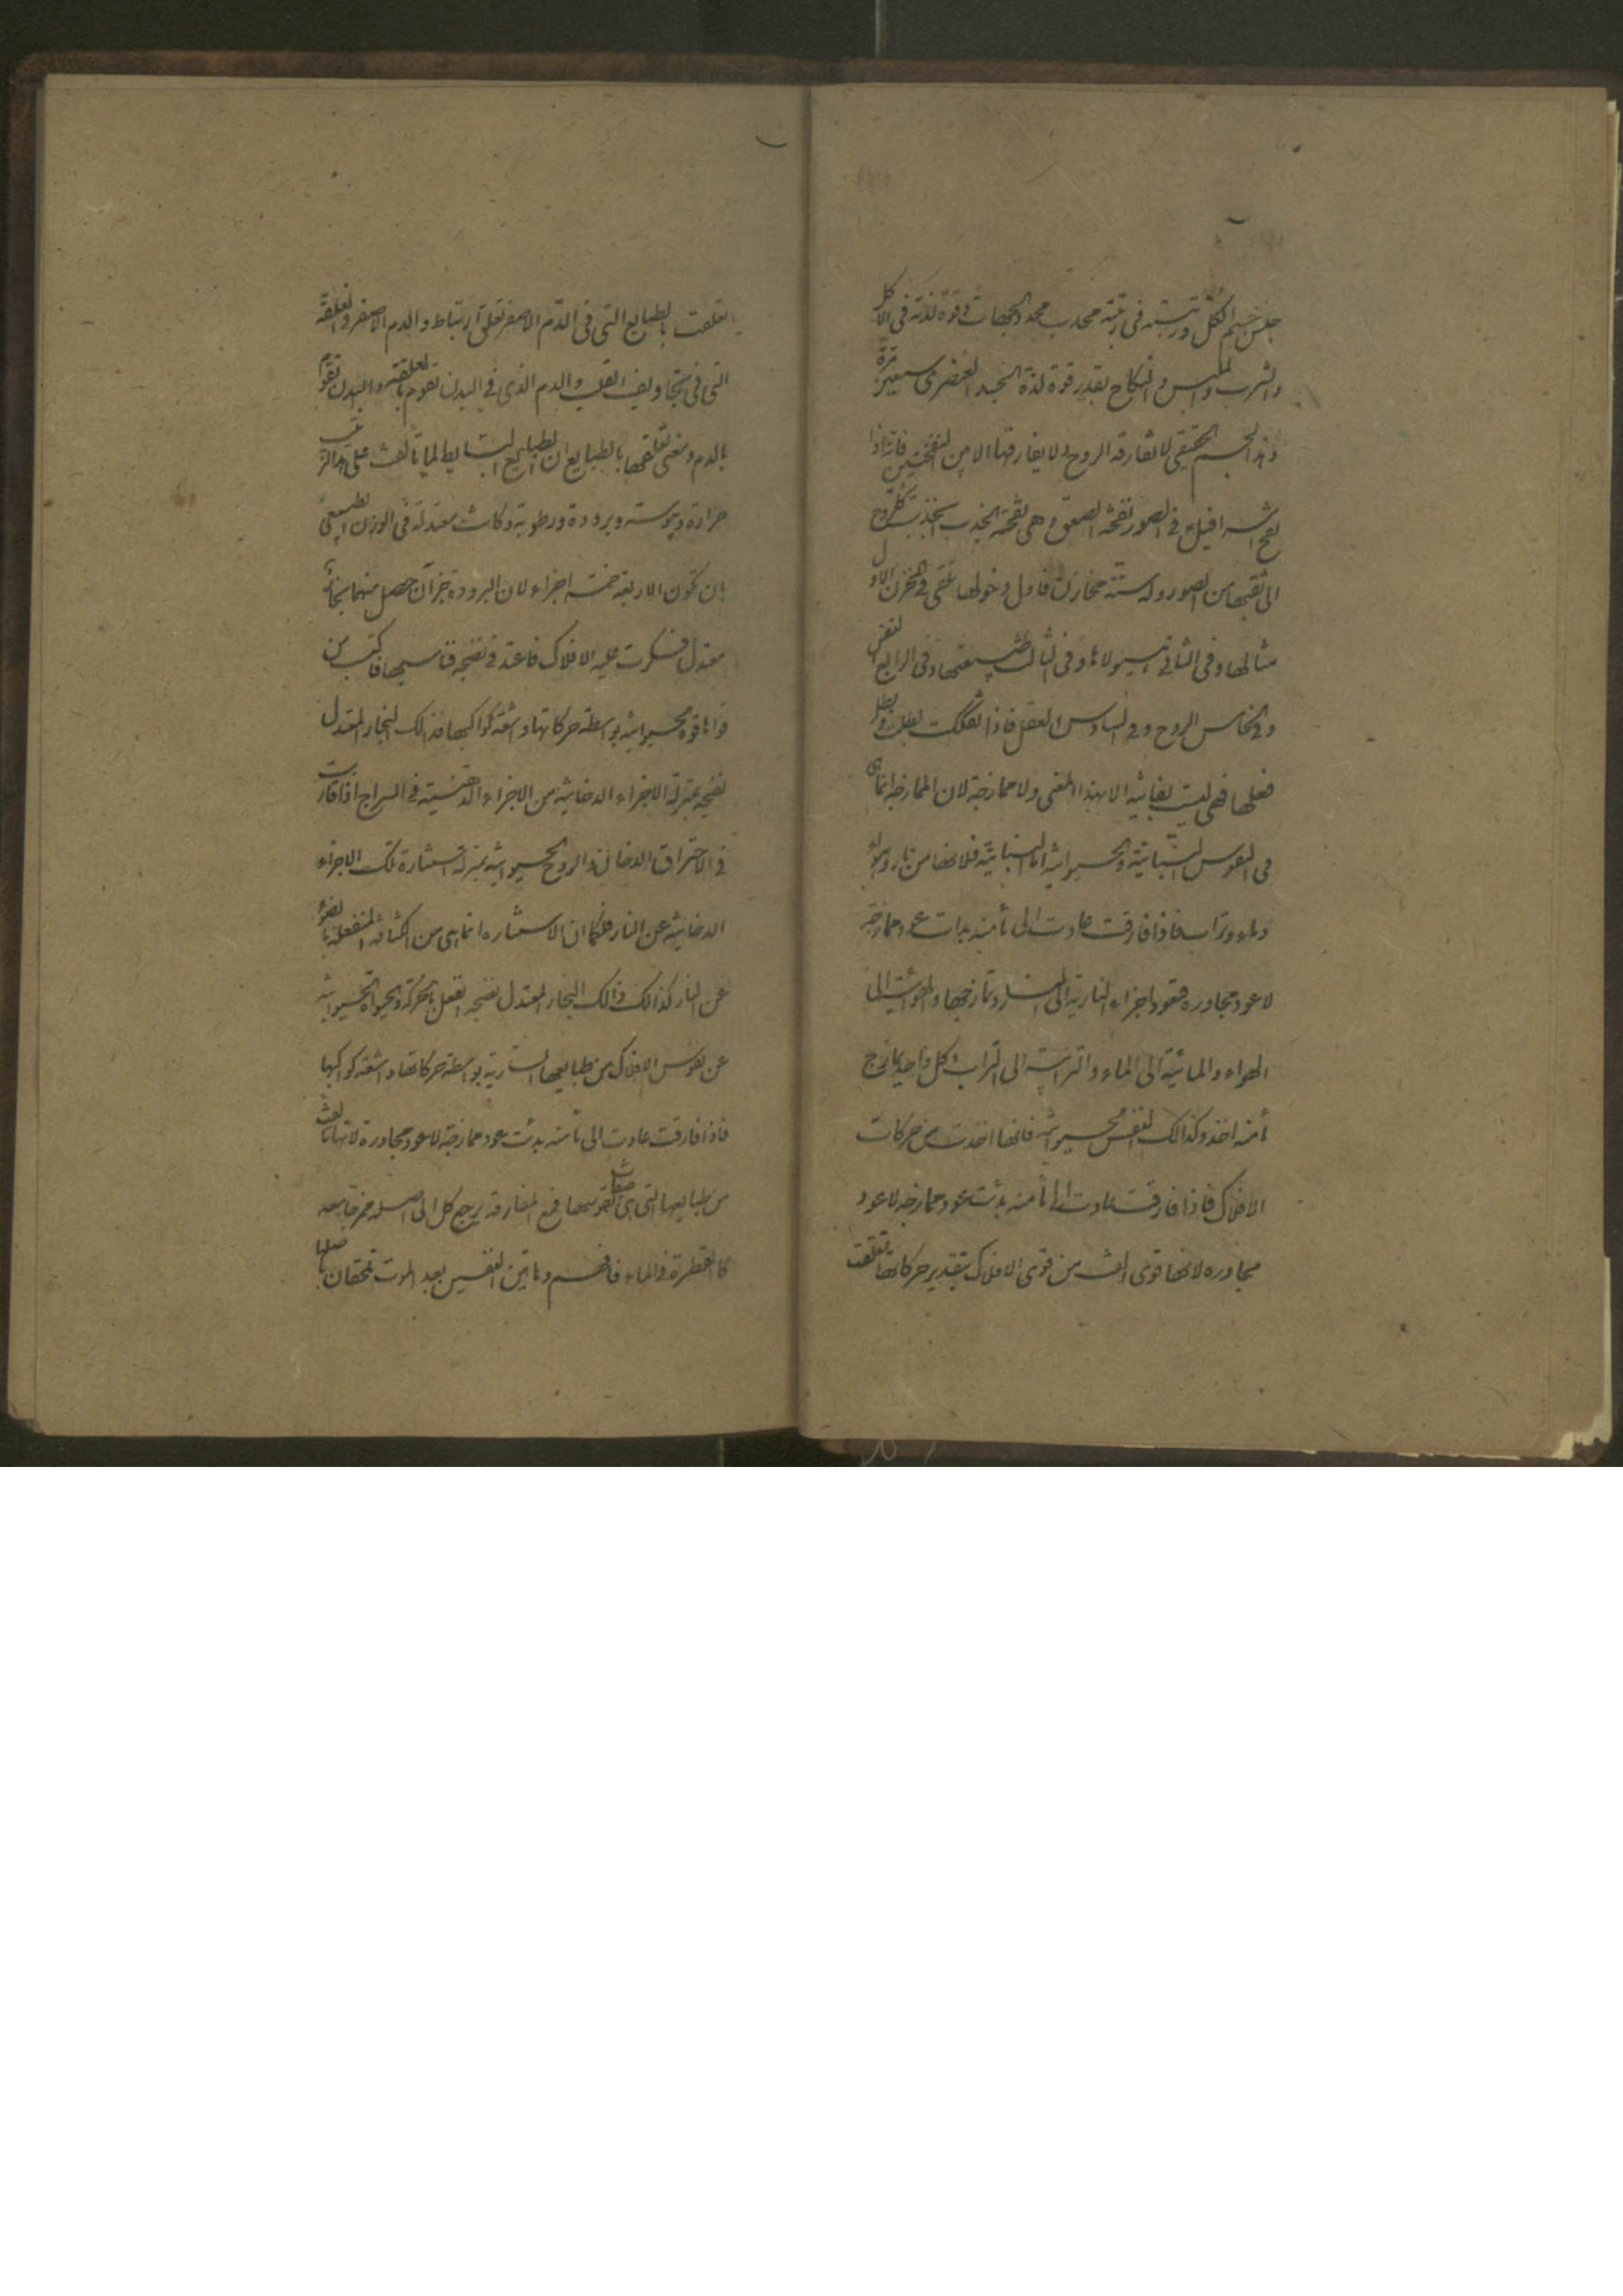 جنس جسم الكل ورتبته في رتبة محدب محدد الجهات وقوة لذته في الاكل
والشرب والملبس والنكاح بقدر قوة لذة الجسد العنصري سبعين مرة
وهذا الجسم الحقيقي لا تفارقه الروح ولا يفارقها الا بين النفختين فانه اذا
نفخ اسرافيل في الصور نفخة الصعق وهي نفخة الجذب تنجذب كل روح
الى ثقبها من الصور وله ستة مخازن فاول دخولها تلقى في المخزن الاول
مثالها وفي الثاني هيولاها وفي الثالث طبيعتها وفي الرابع النفس
وفي الخامس الروح وفي السادس العقل فاذا تفككت بطلت وبطل
فعلها فهي ليست بفانية الا بهذا المعنى ولا ممازجة لان الممازجة انما هي
في النفوس النباتية والحيوانية اما النباتية فلانها من نار وهواء
وماء وتراب فاذا فارقت عادت الى ما منه بدات عود ممازجة
لا عود مجاورة فتعود اجزاء النارية الى النار وتمازجها والهوائية الى
الهواء والمائية الى الماء والترابية الى التراب وكل واحد يمازج
ما منه اخذ وكذالك النفس الحيوانية فانها اخذت من حركات
الافلاك فاذا فارقت عادت الى ما منه بدئت عود ممازجه لا عود
مجاوره لانها قوى الفت من قوى الافلاك بتقدير حركاتها تعلقت
تعلقت بالطبايع التي في الدم الاصفر تعلق ارتباط والدم الاصفر والعلقة
التي في تجاويف القلب والدم الذي في البدن تقوم بالعلقة والبدن تقوم
بالدم ومعنى تعلقها بالطبايع ان الطبايع البسايط لما تالفت على هذا الترتيب
حرارة ويبوسته وبرودة ورطوبة وكانت معتدلة في الوزن الطبيعي
بان تكون الاربعة خمسة اجزاء لان البرودة جزآن حصل منهما بخار
معتدل فسكرت عليه الافلاك فاعتد في نضجه فاكتسب من
قواها قوة حيوانية بواسطة حركاتها واشعة كواكبها فذالك البخار المعتدل
نضجه بمنزلة الاجزاء الدخانية من الاجزاء الدهنية في السراج اذا قاربت
في الاحتراق الدخان والروح الحيوانية بمنزلة استنارة تلك الاجزاء
الدخانية عن النار فكما ان الاستناره انما هي من اكثافه المنفعلة بالضوء
عن النار كذالك ذالك البخار المعتدل نضجه انفعل بالحركة والحيوة الحيوانية
عن نفوس الافلاك من طبايعها السارية بواسطة حركاتها واشعة كواكبها
فاذا فارقت عادت الى ما منه بدئت عود ممازجة لا عود مجاورة لانها تالفت
من طبايعها التي هي صفات نفوسها فمع المفارقة يرجع كل الى اصله ممزجا معه
كالقطرة في الماء فافهم وهاتين النفسين بعد الموت تلحقان باصلها